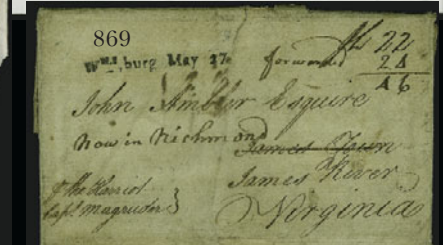 869
Wms.burg May 27 forwarded Sh 22
24
46
John Ambler Esquire
Now in Richmond James Town
James River
Virginia
Capt Magruder